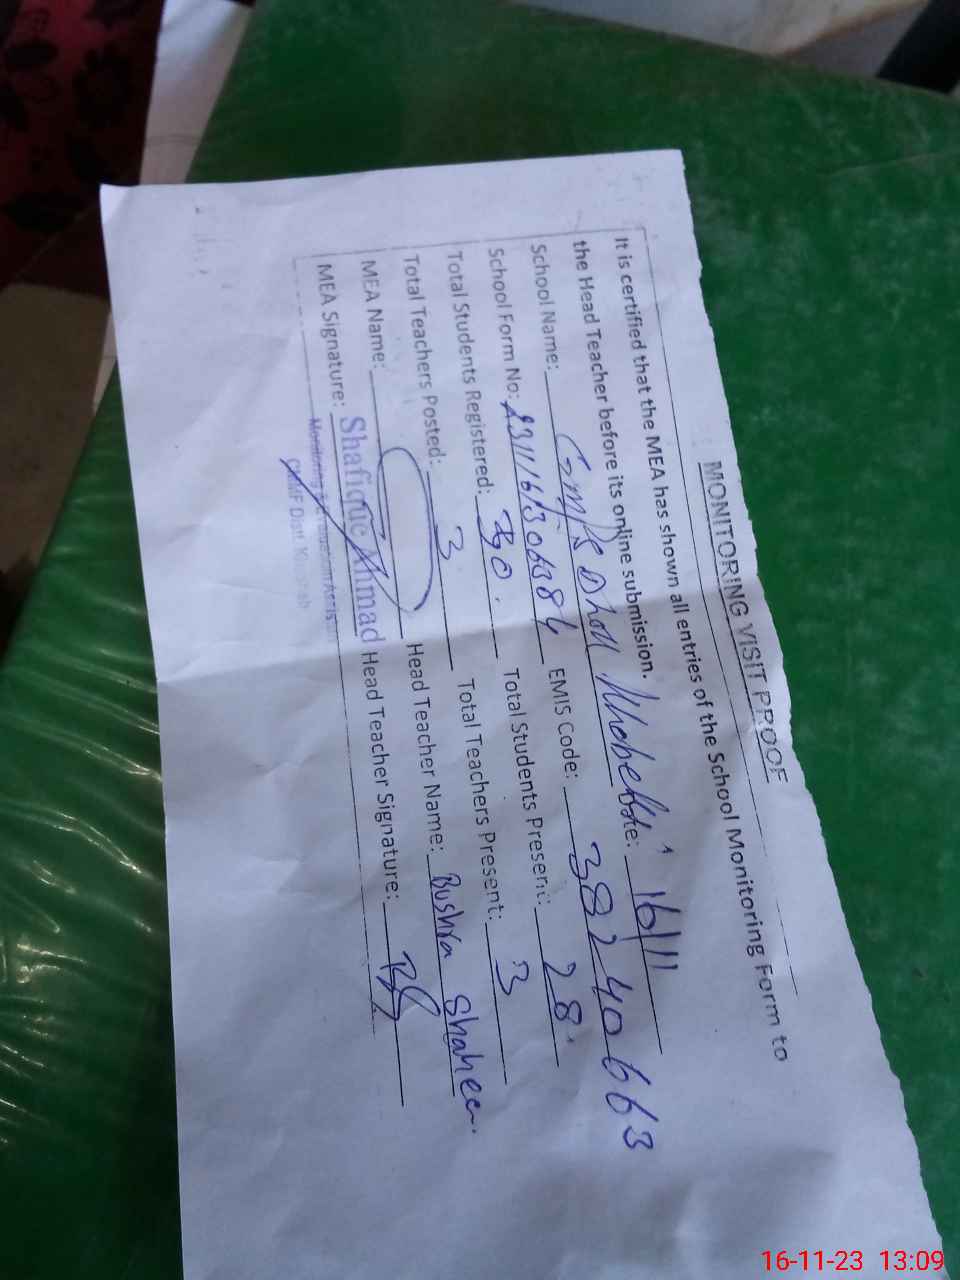 MONITORING VISIT PROOF
It is certified that the MEA has shown all entries of the School Monitoring Form to
the Head Teacher before its online submission.
School Name: Gmps Dhok Date: 16/11
School Form No: EMIS Code: 38240663
Total Students Registered: 30 Total Students Present: 28
Total Teachers Posted: 3 Total Teachers Present: 3
MEA Name: Head Teacher Name: Bushra Shaheen.
MEA Signature: Shafique Ahmad Head Teacher Signature:
Monitoring & Evaluation Assistant
CMMF Distt
16-11-23 13:09